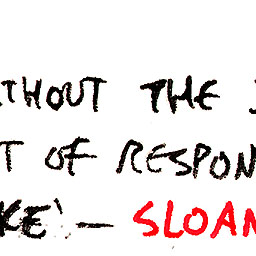 THOUT THE
T OF RESPON
KE' — SLOAN